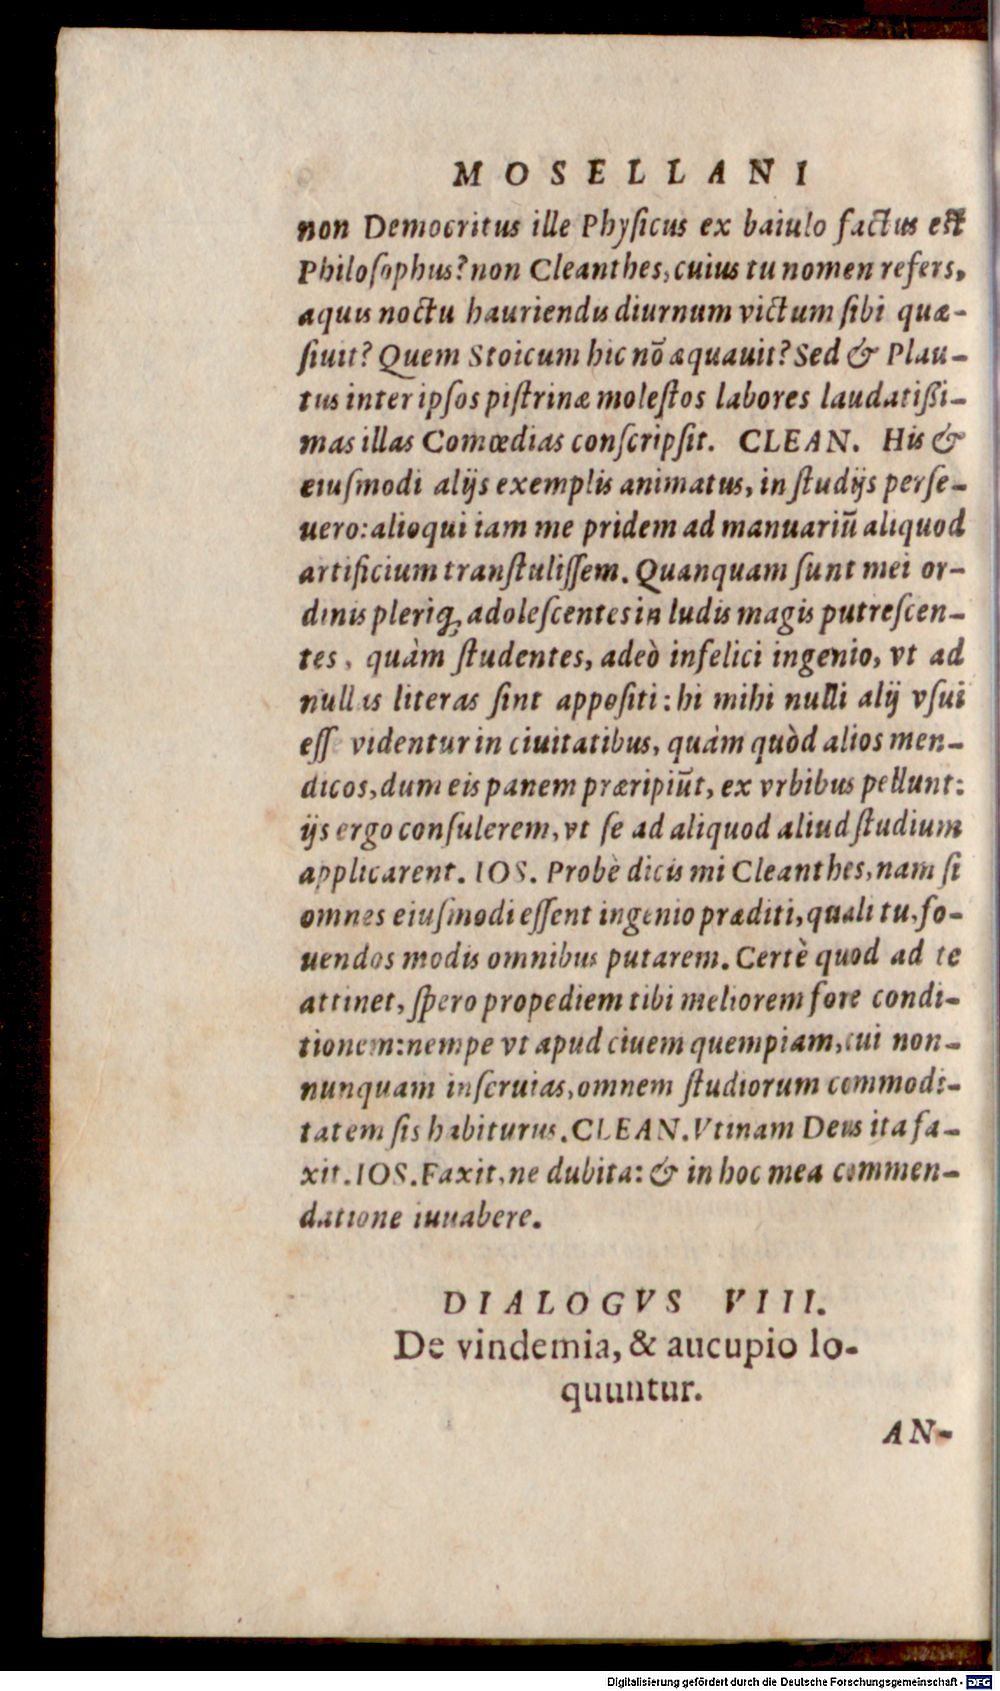 MOSELLANI
non Democritus ille Phyſicus ex baiulo factus eſt
Philoſophus? non Cleanthes, cuius tu nomen refers,
aquis noctu hauriendis diurnum victum ſibi quæ-
ſiuit? Quem Stoicum hic nõ æquauit? Sed & Plau-
tus inter ipſos piſtrinæ moleſtos labores laudatiſſi-
mas illas Comœdias conſcripſit. CLEAN. His &
eiuſmodi alijs exemplis animatus, in ſtudijs perſe-
uero: alioqui iam me pridem ad manuariũ aliquod
artificium tranſtuliſſem. Quanquam ſunt mei or-
dinis pleriq; adoleſcentes in ludis magis putreſcen-
tes, quàm ſtudentes, adeò infelici ingenio, vt ad
nullas literas ſint appoſiti: hi mihi nulli alij vſui
eſſe videntur in ciuitatibus, quàm quòd alios men-
dicos, dum eis panem præripiũt, ex vrbibus pellunt:
ijs ergo conſulerem, vt ſe ad aliquod aliud ſtudium
applicarent. IOS. Probè dicis mi Cleanthes, nam ſi
omnes eiuſmodi eſſent ingenio præditi, quali tu, fo-
uendos modis omnibus putarem. Certè quod ad te
attinet, ſpero propediem tibi meliorem fore condi-
tionem: nempe vt apud ciuem quempiam, cui non-
nunquam inſeruias, omnem ſtudiorum commodi-
tatem ſis habiturus. CLEAN. Vtinam Deus ita fa-
xit. IOS. Faxit, ne dubita: & in hoc mea commen-
datione iuuabere.
DIALOGVS VIII.
De vindemia, & aucupio lo-
quuntur.
AN-
Digitalisierung gefördert durch die Deutsche Forschungsgemeinschaft - DFG